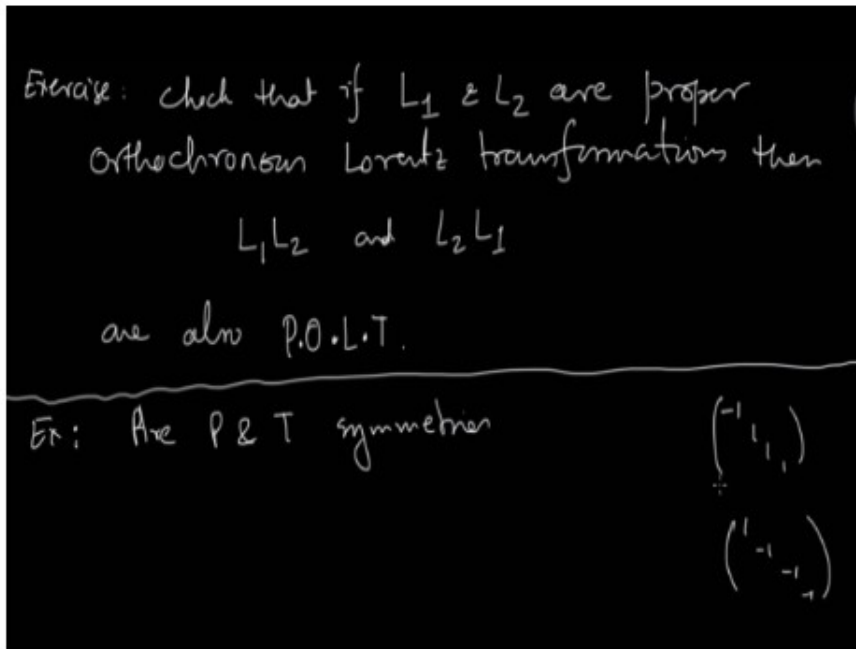 Exercise: Check that if L1 & L2 are proper
Orthochronous Lorentz transformations then
L1L2 and L2L1
are also P.O.L.T.
Ex: Are P & T symmetries
(-1 1 1 1)
(1 -1 -1 -1)